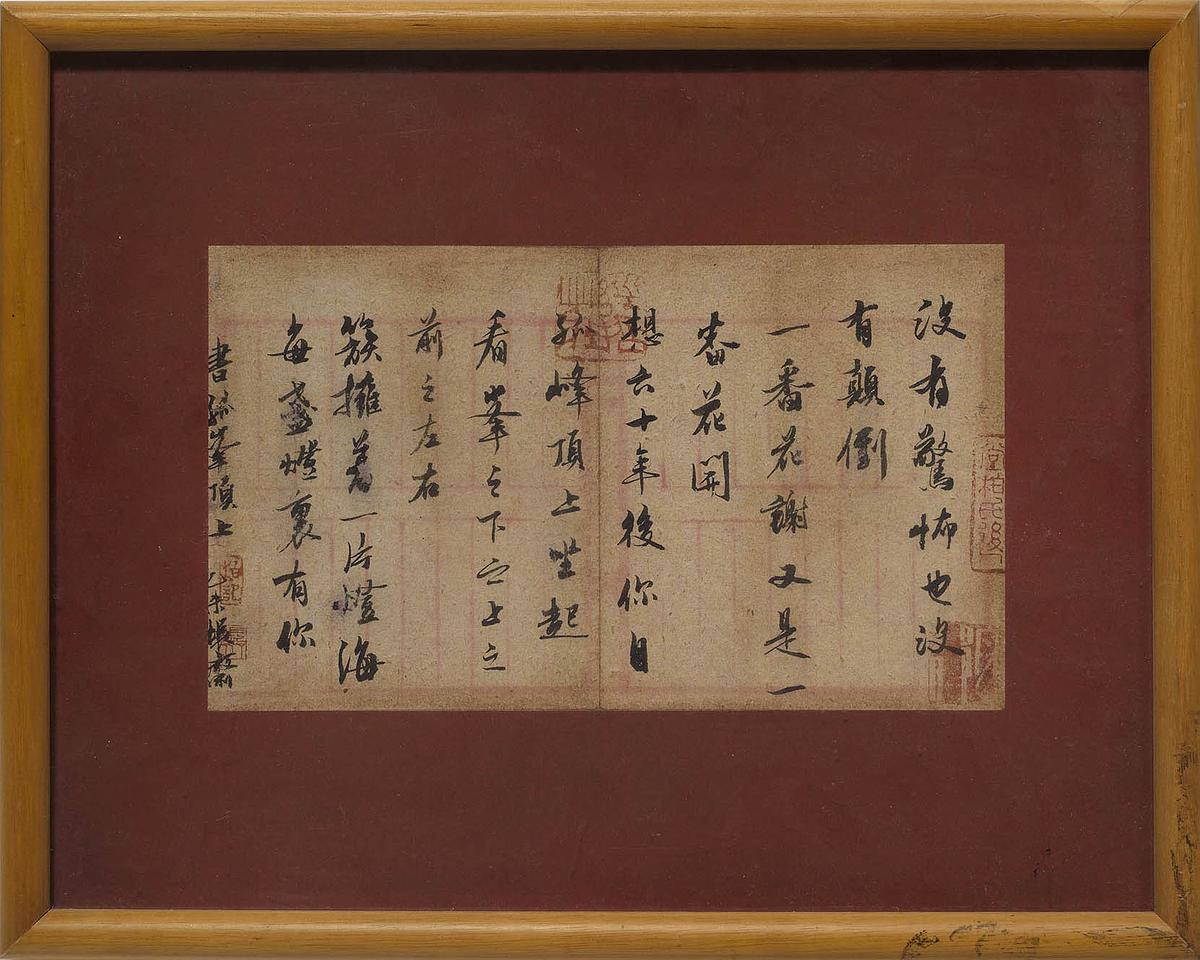 沒有驚怖也沒
有顛倒
一番花謝又是一
番花開
想六十年後你自
孤峰頂上坐起
看峯之下之上之
前之左右
簇擁著一片燈海
每盞燈裏有你
書孤峯頂上